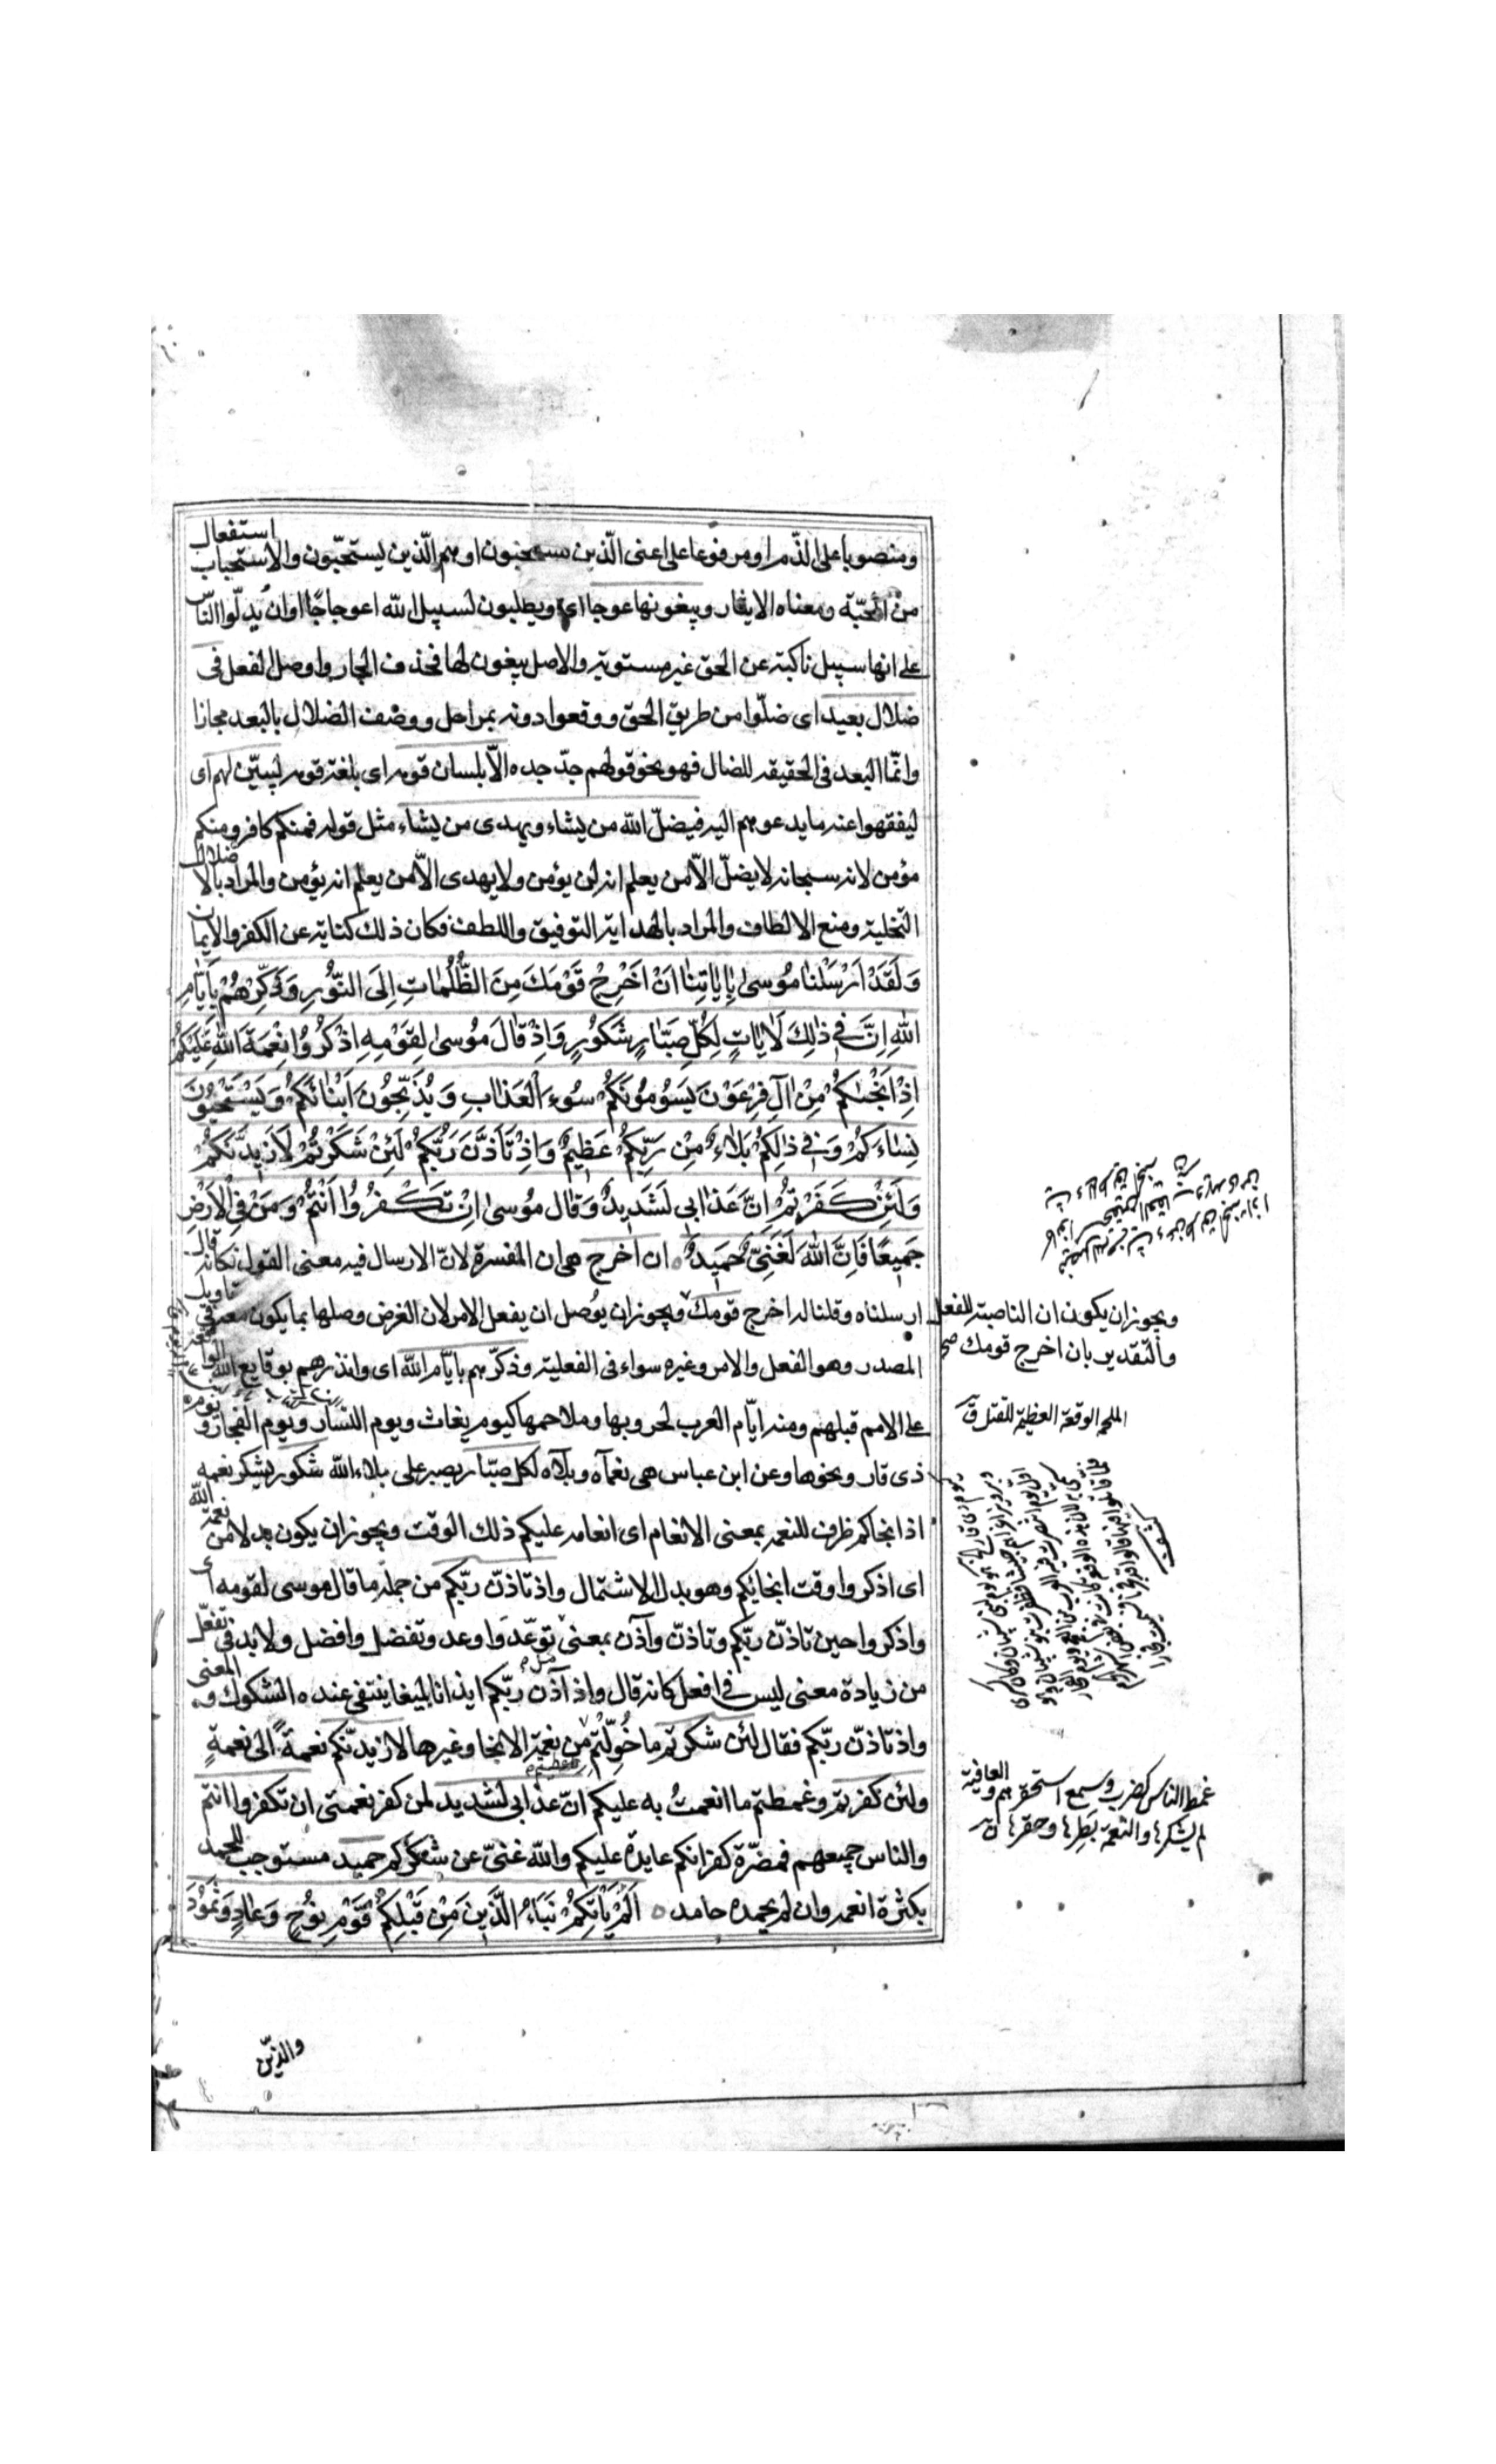 ومنصوبا على الذّم او مرفوعا على اعنى الّذين يستحبون او هم الّذين يستحبّون والاستحباب استفعال
من المحبّة ومعناه الايثار ويبغونها عوجا اى ويطلبون لسبيل الله اعوجاجًا اوان يدلّوا النّاس
على انها سبيل ناكبة عن الحق غير مستوية والاصل يبغون لها فحذف الجار واوصل الفعل فى
ضلال بعيد اى ضلّوا من طريق الحق ووقعوا دونه بمراحل ووصف الضلال بالبعد مجازا
وانّما البعد فى الحقيقه للضال فهو نحو قولهم جدّ جده الّا بلسان قومه اى بلغة قومه ليبيّن لهم اى
ليفقهوا عنه ما يدعوهم اليه فيضلّ الله من يشاء ويهدى من يشاء مثل قوله فمنكم كافر ومنكم
مؤمن لانه سبحانه لا يضلّ الّا من يعلم انه لن يؤمن ولا يهدى الّا من يعلم انه يؤمن والمراد بالاضلال
التّخلية ومنع الالطاف والمراد بالهداية التوفيق واللطف فكان ذلك كناية عن الكفر والايمان
وَلَقَدْ اَرْسَلْنَا مُوسىٰ بِاٰيَاتِنٰا اَنْ اَخْرِجْ قَوْمَكَ مِنَ الظُّلُمٰاتِ اِلَى النُّورِ وَذَكِّرْهُمْ بِاَيّٰامِ
اللهِ اِنَّ فى ذٰلِكَ لَاٰيٰاتٍ لِكُلِّ صَبّٰارٍ شَكُورٍ وَاِذْ قٰالَ مُوسىٰ لِقَوْمِهِ اذْكُرُوا نِعْمَةَ اللهِ عَلَيْكُمْ
اِذْ اَنْجٰىكُمْ مِنْ اٰلِ فِرْعَوْنَ يَسُومُونَكُمْ سُوءَ الْعَذٰابِ وَيُذَبِّحُونَ اَبْنٰاءَكُمْ وَيَسْتَحْيُونَ
نِسٰاءَكُمْ وَفى ذٰلِكُمْ بَلٰاءٌ مِنْ رَبِّكُمْ عَظِيمٌ وَاِذْ تَاَذَّنَ رَبُّكُمْ لَئِنْ شَكَرْتُمْ لَاَزِيدَنَّكُمْ
وَلَئِنْ كَفَرْتُمْ اِنَّ عَذٰابى لَشَدِيدٌ وَقٰالَ مُوسىٰ اِنْ تَكْفُرُوا اَنْتُمْ وَمَنْ فِى الْاَرْضِ
جَمِيعًا فَاِنَّ اللهَ لَغَنِىٌّ حَمِيدٌ ان اخرج هى ان المفسرة لانّ الارسال فيه معنى القول فكانه قال
ارسلناه وقلنا له اخرج قومك ويجوز ان يوُصل ان بفعل الامر لان الغرض وصلها بما يكون معه فى تاويل
المصدر وهو الفعل والامر وغيره سواء فى الفعلية وذكّرهم بايّام الله اى وانذرهم بوقايع الله الواقعة
على الامم قبلهم ومنه ايّام العرب لحروبها وملاحمها كيوم بغاث ويوم النسار ويوم الفجار ويوم
ذى قار ونحوها وعن ابن عباس هى نعمآه وبلآه لكل صبّار يصبر على بلاء الله شكور يشكر نعمه
اذ انجاكم ظرف للنعمه بمعنى الانعام اى انعامه عليكم ذلك الوقت ويجوز ان يكون بدلا من نعمة الله
اى اذكروا وقت انجائكم وهو بدل الاشتمال واذ تاذّن ربّكم من جمله ما قال موسى لقومه اى
واذكروا حين تاذّن ربّكم وتاذّن وآذن بمعنى توعّد واوعد وتفضل وافضل ولا بد فى تفعّل
من زيادة معنى ليس فى افعل كانه قال واذ آذن ربّكم ايذانا بليغا ينتفى عنده الشكوك والمعنى
واذ تاذّن ربّكم فقال لئن شكرتم ما خُوّلتم من نعمة الانجا وغيرها لازيدنّكم نعمةً الى نعمةٍ
ولئن كفرتم وغمطتم ما انعمتُ به عليكم انّ عذابى لشديد لمن كفر نعمتى ان تكفروا انتم
والناس جميعهم فمضرّة كفرانكم عايدة عليكم والله غنىّ عن شكركم حميد مستوجب للحمد
بكثرة انعمه وان لم يحمده حامد اَلَمْ يَأْتِكُمْ نَبَاءُ الَّذِينَ مِنْ قَبْلِكُمْ قَوْمِ نُوحٍ وَعٰادٍ وَثَمُودَ
والذين
ويجوز ان يكون ان الناصبة للفعل
والتقدير بان اخرج قومك صح
الملحمه الوقعة العظيمة للقتل ق
غمط الناس كضرب وسمع استحقرهم والعافية
لم يشكرها والنعمة بطرها وحقرها ق